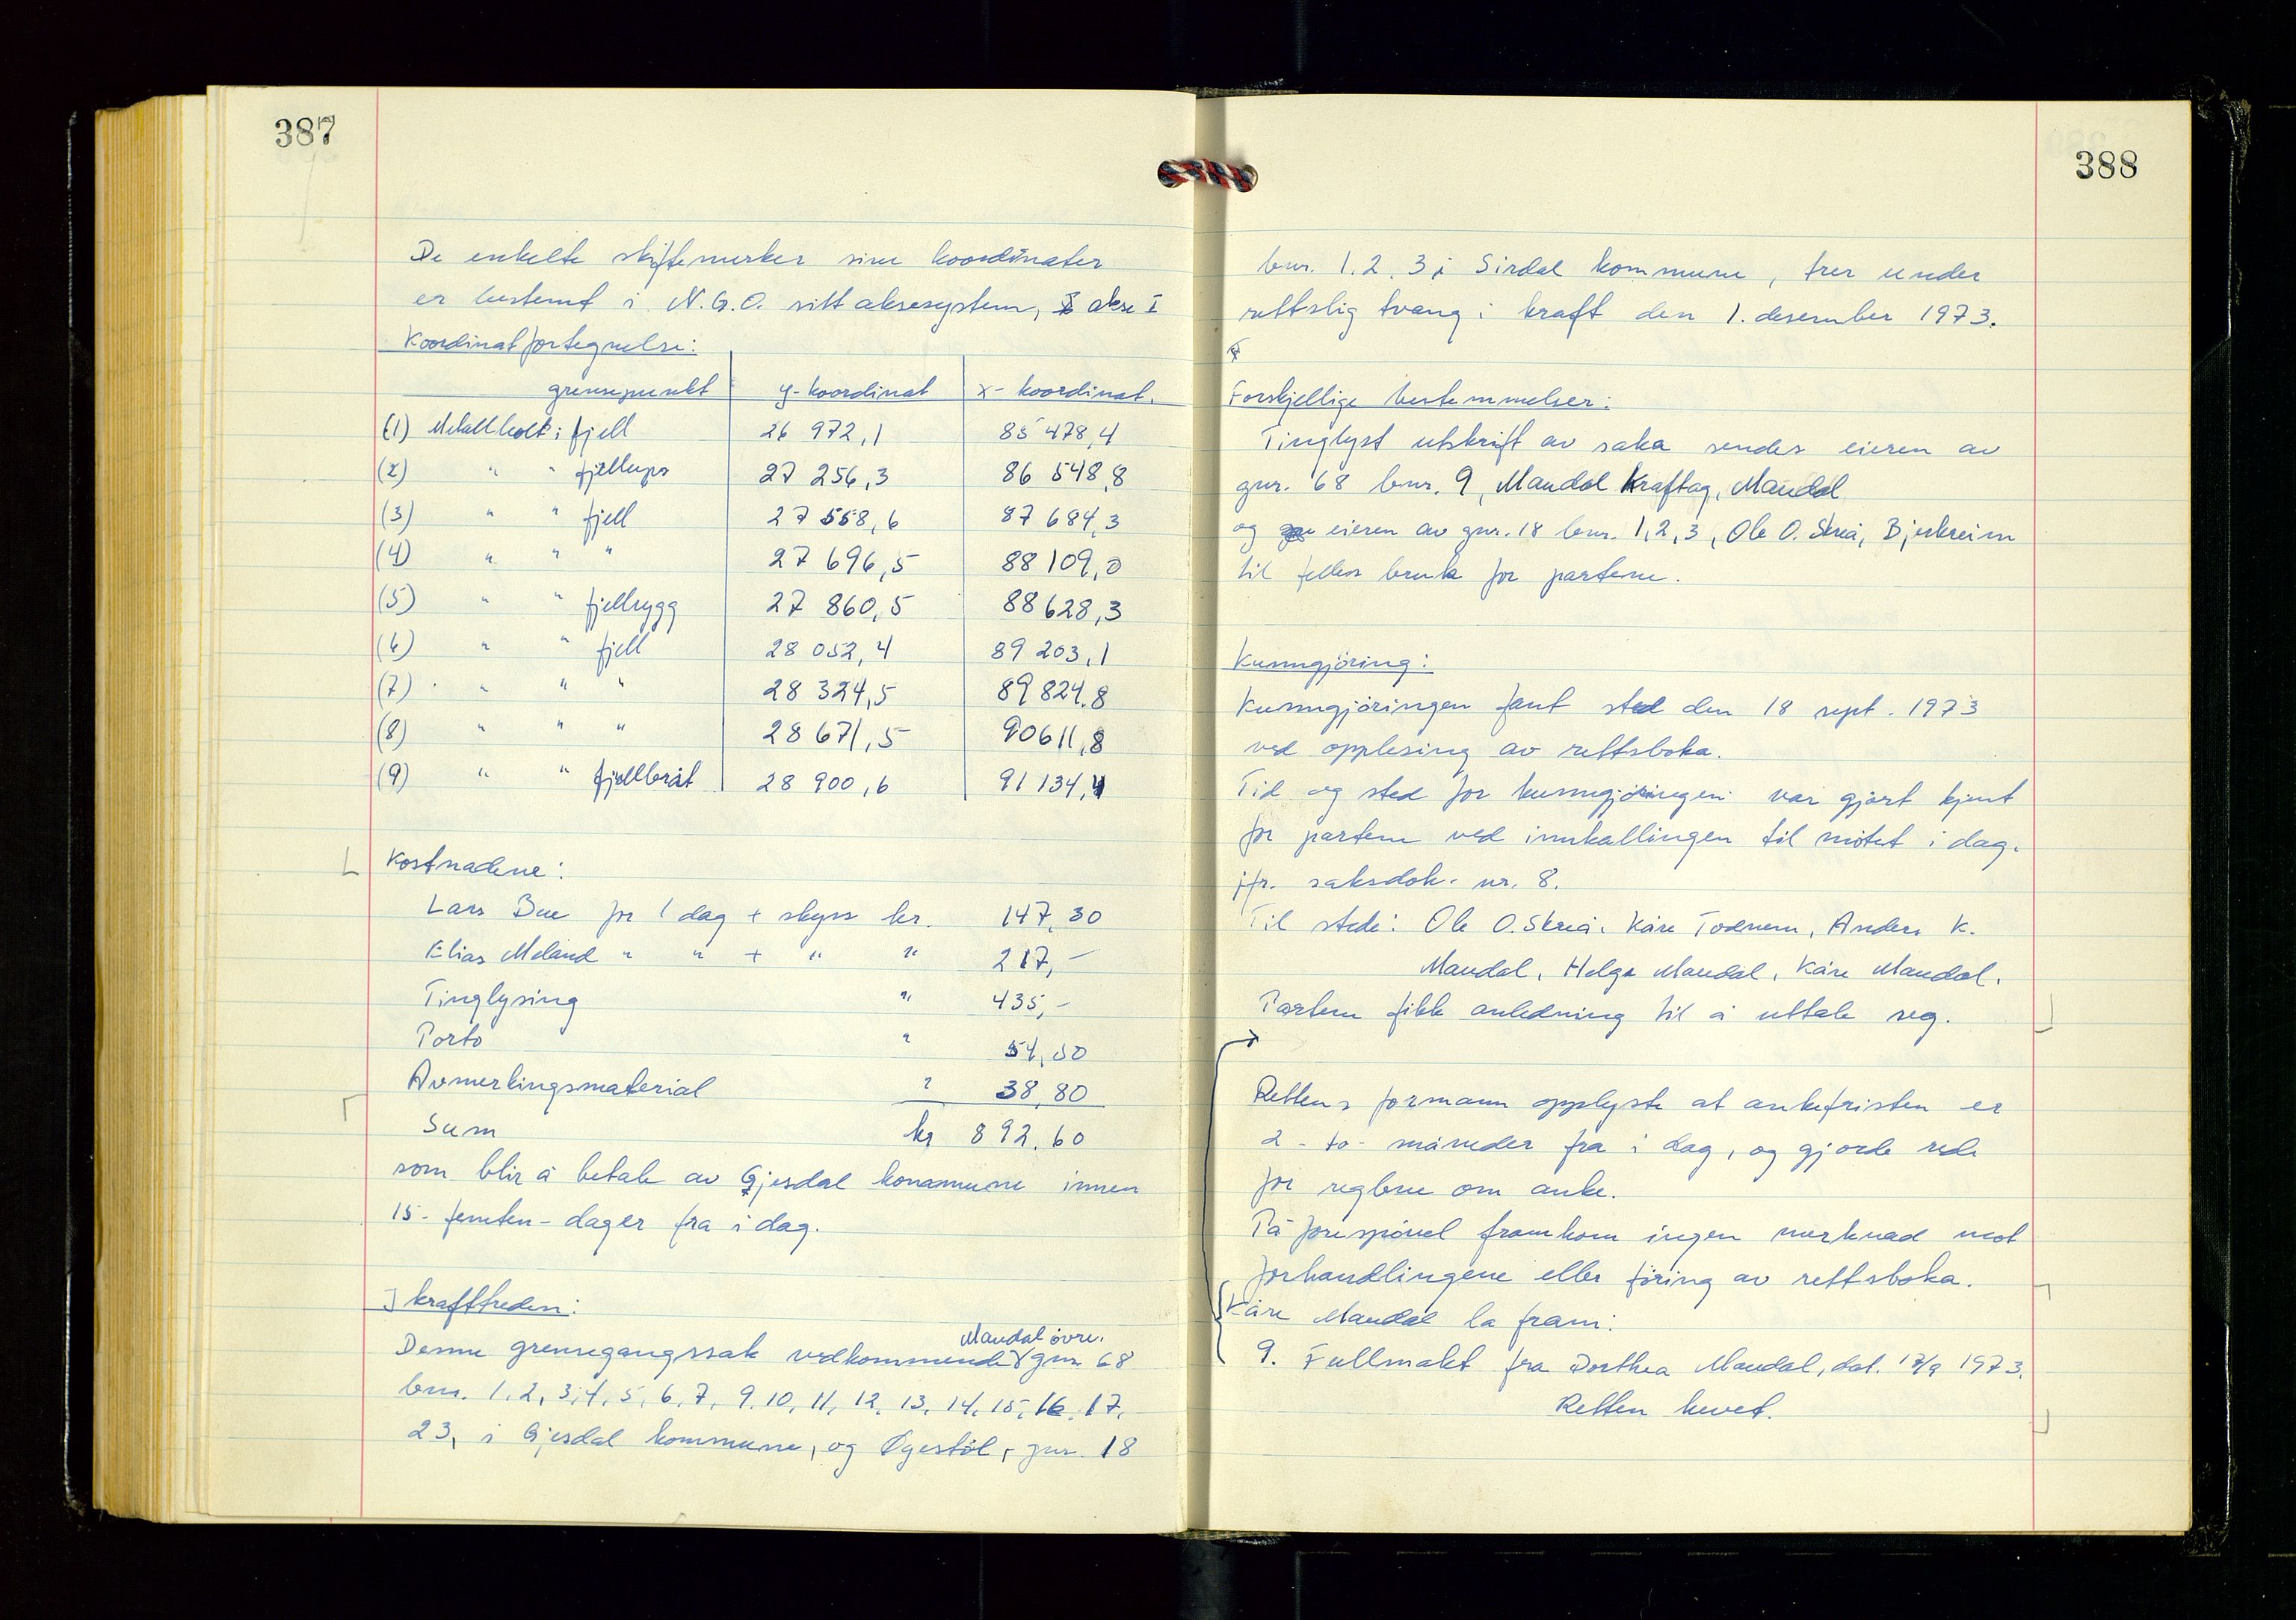 387
De enkelte skiftemerker sine koordinater
er bestemt i N.G.O. sitt aksesystem, akse I
Koordinatfortegnelse:
grensepunkt y-koordinat x-koordinat.
(1) Metallbolt i fjell 26 972,1 85 478,4
(2) " " fjellups 27 256,3 86 548,8
(3) " " fjell 27 558,6 87 684,3
(4) " " " 27 696,5 88 109,0
(5) " " fjellrygg 27 860,5 88 628,3
(6) " " fjell 28 052,4 89 203,1
(7) " " " 28 324,5 89 824,8
(8) " " " 28 671,5 90 611,8
(9) " " fjellbråt 28 900,6 91 134,4
Kostnadene:
Lars Bue for 1 dag + skyss kr. 147,30
Elias Meland " " + " " 217,-
Tinglysing " 435,-
Porto " 54,50
Avmerkingsmaterial " 38,80
Sum kr 892.60
som blir å betale av Gjesdal kommune innen
15 - femten - dager fra i dag.
Ikrafttreden:
Mandal övre.
Denne grensegangssak vedkommende gnr. 68
bnr. 1, 2, 3, 4, 5, 6, 7, 9, 10, 11, 12, 13, 14, 15, 16, 17,
23, i Gjesdal kommune, og Øgestöl, gnr. 18
388
bnr. 1. 2. 3 i Sirdal kommune, trer under
rettslig tvang i kraft den 1. desember 1973.
Forskjellige bestemmelser:
Tinglyst utskrift av saka sendes eieren av
gnr. 68 bnr. 9, Mandal Kraftag, Mandal
og eieren av gnr. 18 bnr. 1, 2, 3, Ole O. Skreå, Bjerkreim
til felles bruk for partene.
Kunngjöring:
Kunngjöringen fant sted den 18 sept. 1973
ved opplesing av rettsboka.
Tid og sted for kunngjöringen var gjort kjent
for partene ved innkallingen til mötet i dag.
jfr. saksdok. nr. 8.
Til stede: Ole O. Skreå. Kåre Todnem, Anders K.
Mandal, Helge Mandal, Kåre Mandal.
Partene fikk anledning til å uttale seg.
Rettens formann opplyste at ankefristen er
2 - to - måneder fra i dag, og gjorde rede
for reglene om anke.
På forespörsel framkom ingen merknad mot
forhandlingene eller föring av rettsboka.
Kåre Mandal la fram:
9. Fullmakt fra Dorthea Mandal, dat. 17/9 1973.
Retten hevet.